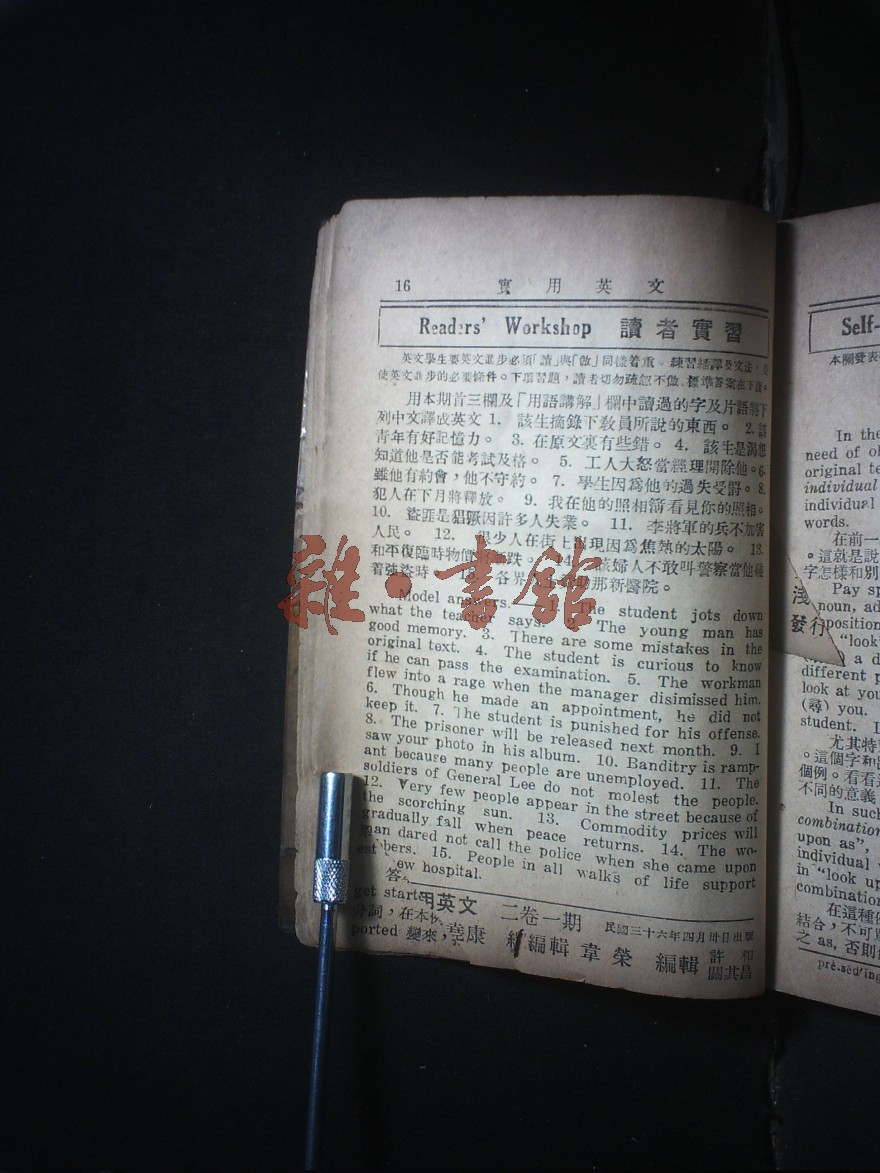 16 實用英文
Readers' Workshop 讀者實習
英文學生要英文進步必須「讀」與「做」同樣着重。練習繙譯及文法,
使英文進步的必要條件。下項習題,讀者切勿疏忽不做。標準答案在下邊。
用本期首三欄及「用語講解」欄中讀過的字及片語將下
列中文譯成英文 1. 該生摘錄下教員所說的東西。 2. 該
青年有好記憶力。 3. 在原文裏有些錯。 4. 該生是渴想
知道他是否能考試及格。 5. 工人大怒當經理開除他。 6.
雖他有約會,他不守約。 7. 學生因爲他的過失受罰。 8.
犯人在下月將釋放。 9. 我在他的照相簿看見你的照相。
10. 盜匪是猖獗因許多人失業。 11. 李將軍的兵不加害
人民。 12. 很少人在街上出現因爲焦熱的太陽。 13.
和平復臨時物價將漸跌。 14. 該婦人不敢叫警察當他碰
着強盜時。 15. 各界人士 那新醫院。
Model answers.— 1. The student jots down
what the teacher says. 2. The young man has
good memory. 3. There are some mistakes in the
original text. 4. The student is curious to know
if he can pass the examination. 5. The workman
flew into a rage when the manager disimissed him.
6. Though he made an appointment, he did not
keep it. 7. The student is punished for his offense.
8. The prisoner will be released next month. 9. I
saw your photo in his album. 10. Banditry is ramp-
ant because many people are unemployed. 11. The
soldiers of General Lee do not molest the people.
12. Very few people appear in the street because of
the scorching sun. 13. Commodity prices will
gradually fall when peace returns. 14. The wo-
man dared not call the police when she came upon
bers. 15. People in all walks of life support
ew hospital.
答
get starte
用英文 二卷一期 民國三十六年四月卅日出版
分詞,在本
ported 變來, 堯康 總編輯 韋榮 編輯 許和 關其昌
雜·書館
Self-
本欄發表
In the
need of ob
original te
individual
individual
words.
在前一
。這就是說
字怎樣和別
Pay sp
noun, ad
position
"look"
a d
different p
look at you
(尋) you.
student. I
尤其特
。這個字和
個例。看看
不同的意義
In such
combination
upon as",
individual
in "look up
combination
在這種
結合,不可
之 as, 否則
pre.sed/ing
淺
發行